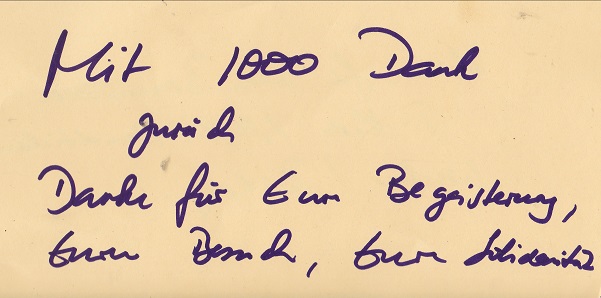 Mit 1000 Dank
zurück
Danke für Eure Begeisterung,
Euren Besuch, Eure Solidarität